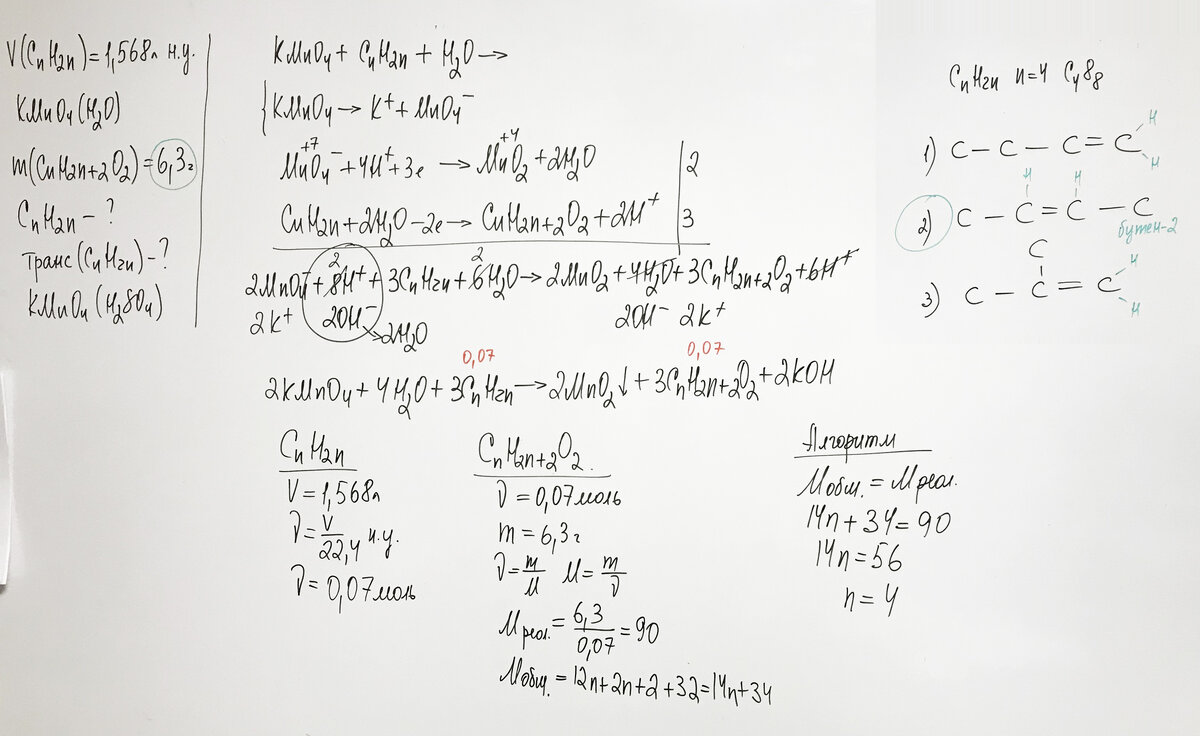 V(CnH2n)=1,568л н.у.
KMnO4(H2O)
m(CnH2n+2O2)=6,3г
CnH2n - ?
транс(CnH2n)-?
KMnO4(H2SO4)
KMnO4 + CnH2n + H2O →
{KMnO4 → K⁺ + MnO4⁻
+7 +4
MnO4⁻ + 4H⁺ + 3e → MnO2 + 2H2O | 2
CnH2n + 2H2O - 2e → CnH2n+2O2 + 2H⁺ | 3
2 2
2MnO4⁻ + 8H⁺ + 3CnH2n + 6H2O → 2MnO2 + 4H2O + 3CnH2n+2O2 + 6H⁺
2K⁺ 2OH⁻ 2OH⁻ 2K⁺
2H2O
0,07 0,07
2KMnO4 + 4H2O + 3CnH2n → 2MnO2↓ + 3CnH2n+2O2 + 2KOH
CnH2n
V=1,568л
ν=V/22,4 н.у.
ν=0,07моль
CnH2n+2O2.
ν=0,07моль
m=6,3г
ν=m/M M=m/ν
Mреал.=6,3/0,07=90
Mобщ.=12n+2n+2+32=14n+34
Алгоритм
Mобщ.=Mреал.
14n+34=90
14n=56
n=4
CnH2n n=4 C4H8
H
1) C - C - C = C
H
H H
2) C - C = C - C
бутен-2
C
H
3) C - C = C
H